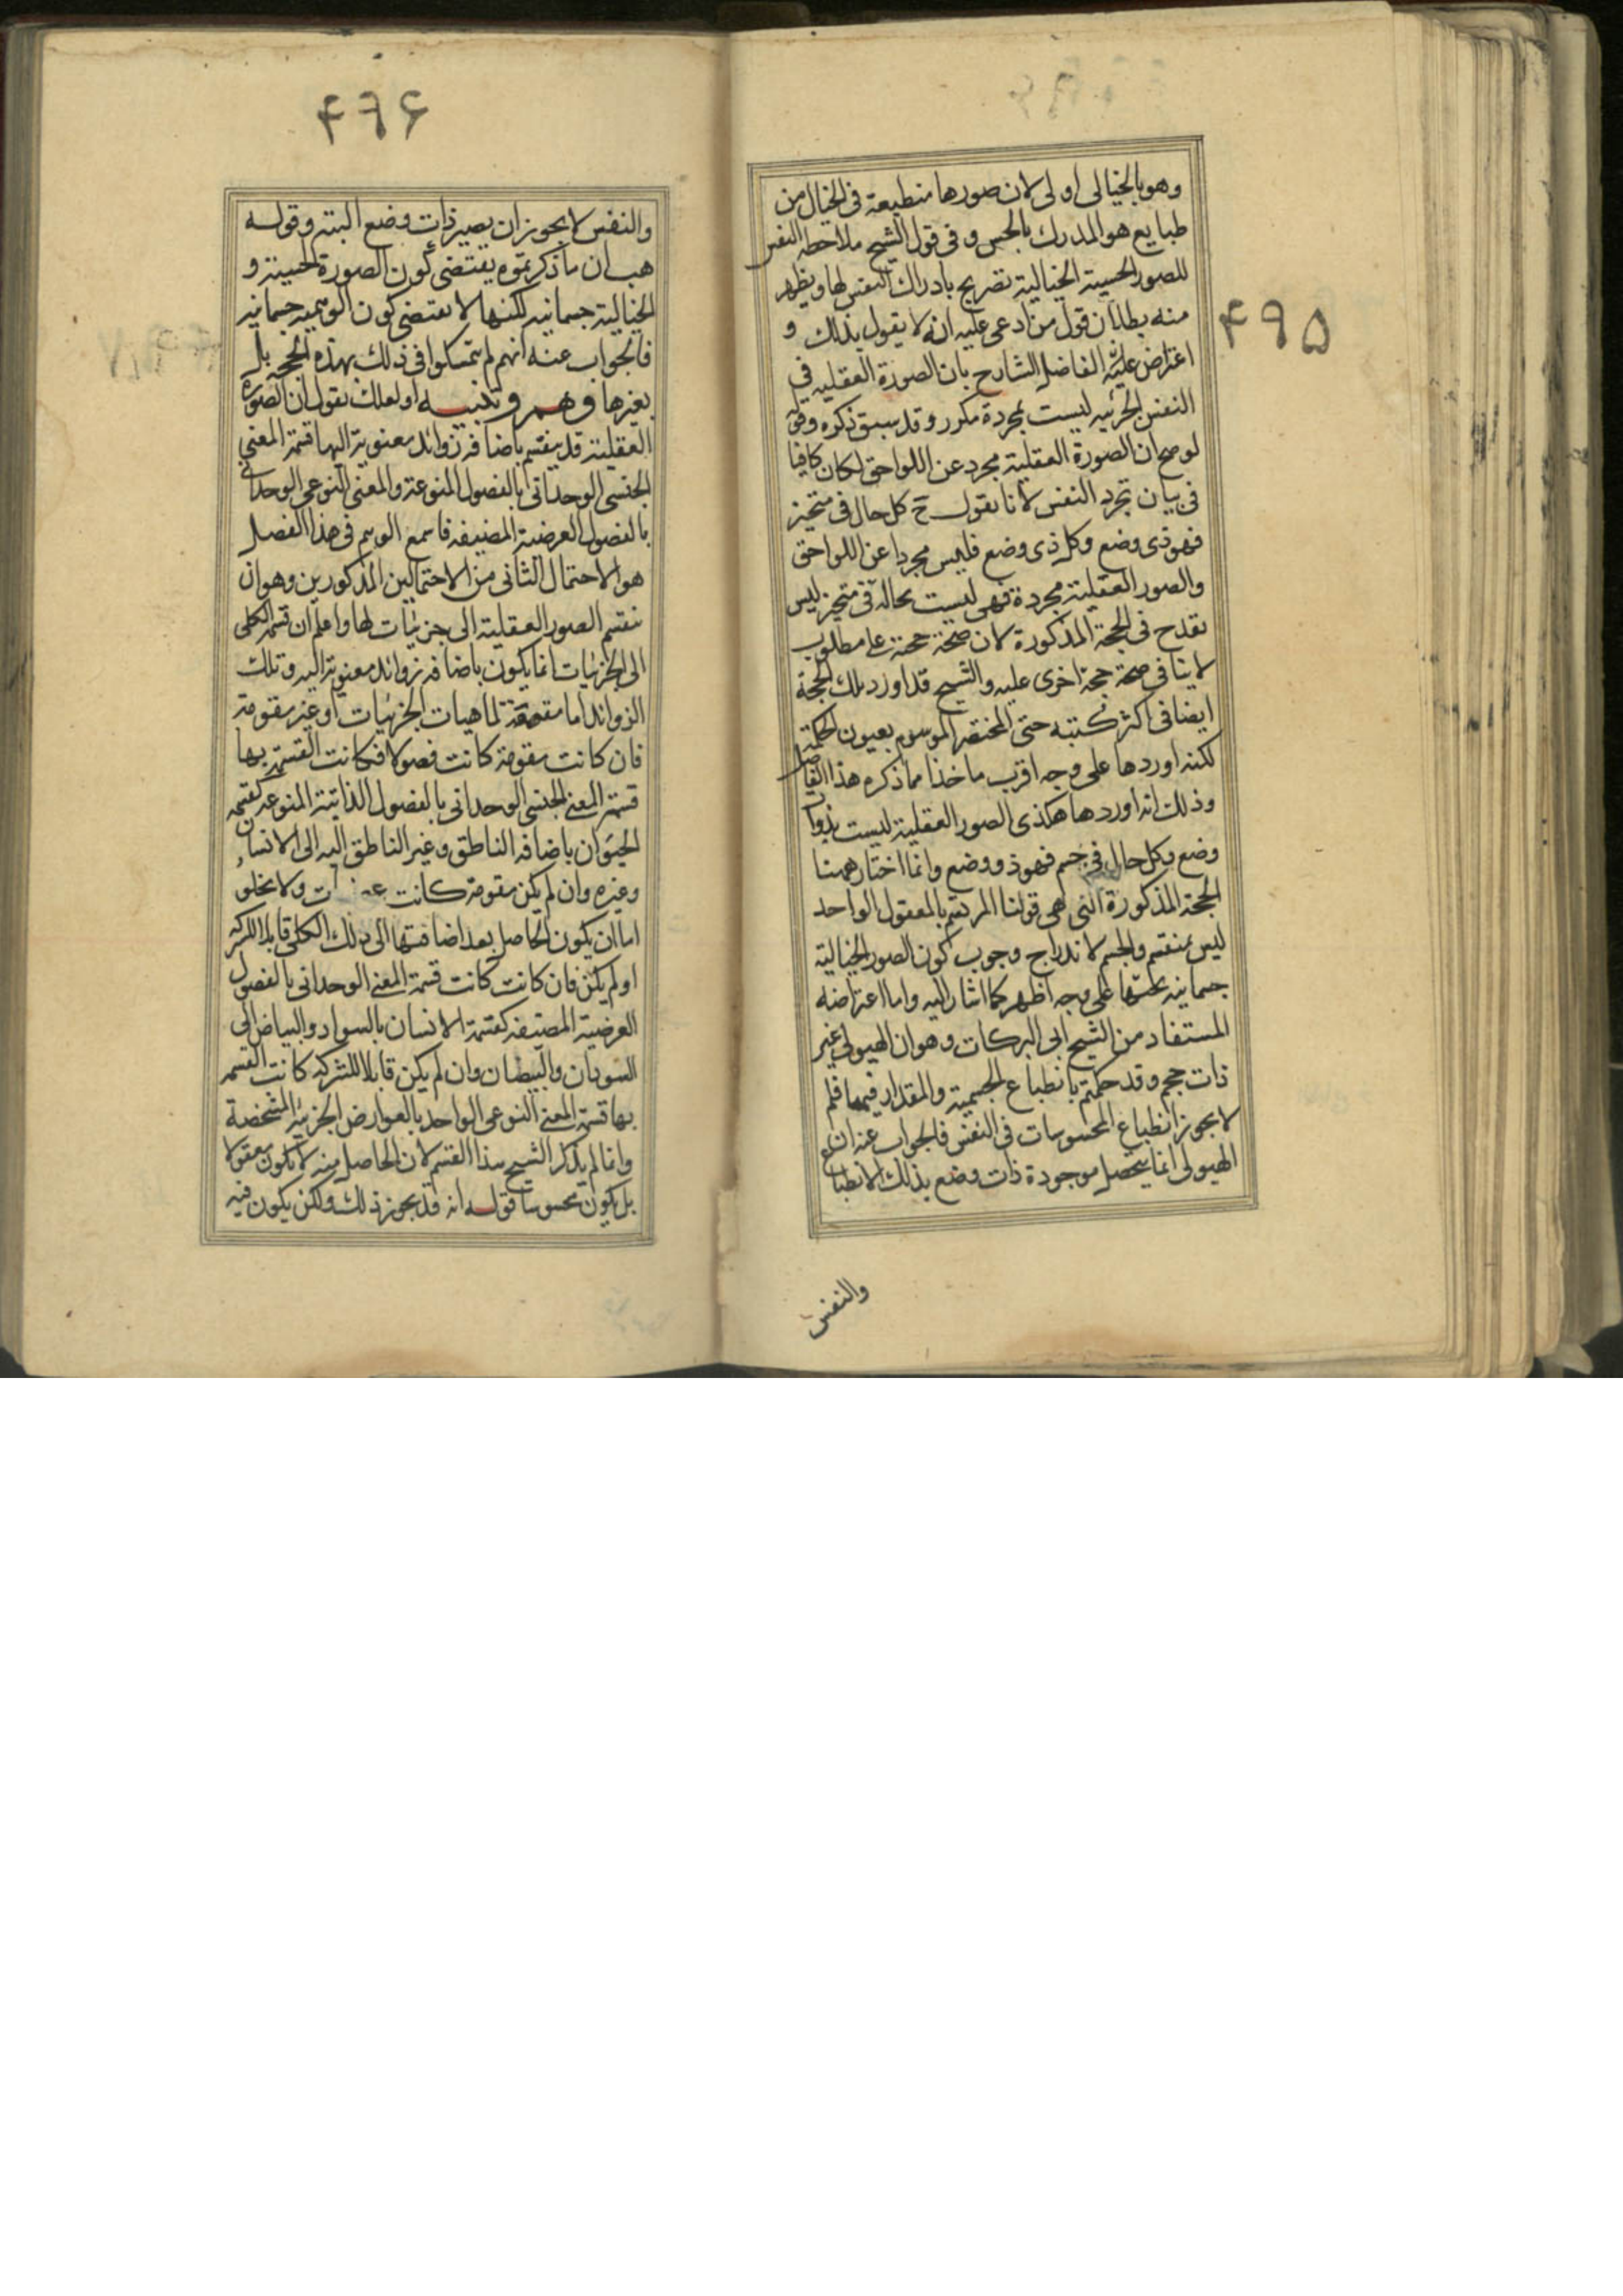 ۴۹۵
وهو بالخيالى اولى لان صورها منطبعة فى الخيال من
طبايع هو المدرك بالحس و فى قول الشيخ ملاحظه النفس
للصور الحسية الخيالية تصريح بادراك النفس لها ويظهر
منه بطلان قول من ادعى عليه انه لا يقول بذلك و
اعتراض عليه الفاضل الشارح بان الصورة العقليه فى
النفس الجزئيه ليست بمجردة مكرر و قد سبق ذكره وقوله
لو صح ان الصورة العقلية مجرد عن اللواحق لكان كافيا
فى بيان تجرد النفس لانا نقول ح كل حال فى متحيز
فهو ذى وضع وكل ذى وضع فليس مجردا عن اللواحق
والصور العقلية مجردة فهى ليست بحالة فى متحيز ليس
بقدح فى الحجة المذكورة لان صحة حجة على مطلوب
لا ينافى صحة حجة اخرى عليه والشيخ قد اورد تلك الحجة
ايضا فى اكثر كتبه حتى المختصر الموسوم بعيون الحكمة
لكنه اوردها على وجه اقرب ماخذا مما ذكره هذا الفاضل
وذلك انه اوردها هكذى الصور العقلية ليست بذوات
وضع وكل حال فى جسم فهو ذو وضع وانما اختار ههنا
الحجة المذكورة التى هى قولنا المرتسم بالمعقول الواحد
ليس بمنقسم والجسم لاندراج وجوب كون الصور الخيالية
جسمانيه تحتها على وجه اظهر كما اشار اليه واما اعتراضه
المستفاد من الشيخ ابى البركات وهو ان الهيولى غير
ذات حجم وقد حكمتم بانطباع الجسمية والمقدار فيها فلم
لا يجوز انطباع المحسوسات فى النفس فالجواب عنه ان
الهيولى انما يتحصل موجودة ذات وضع بذلك الانطباع
والنفس
۴۹۶
والنفس لا يجوز ان يصير ذات وضع البته وقوله
هب ان ما ذكرتموه يقتضى كون الصورة الحسية و
الخيالية جسمانيه لكنها لا يقتضى كون الوهمية جسمانيه
فالجواب عنه انهم لم يتمسكوا فى ذلك بهذه الحجه بل
بغيرها وهم وتنبيه او لعلك تقول ان الصورة
العقلية قد ينقسم باضافة زوائد معنوية اليها قسمة المعنى
الجنسى الوحدانى بالفصول المنوعة والمعنى النوعى الوحدانى
بالفصول العرضية المصنفه فاسمع الوهم فى هذا الفصل
هو الاحتمال الثانى من الاحتمالين المذكورين وهو ان
ينقسم الصور العقلية الى جزئيات لها واعلم ان قسمة الكلى
الى الجزئيات انما يكون باضافة زوائد معنوية اليه وتلك
الزوائد اما مقومة لماهيات الجزئيات او غير مقومة
فان كانت مقومة كانت فصولا فكانت القسمة بها
قسمة المعنى الجنسى الوحدانى بالفصول الذاتية المنوعه كقسمة
الحيوان باضافة الناطق وغير الناطق اليه الى الانسان
وغيره وان لم يكن مقومة كانت ولا يخلو
اما ان يكون الحاصل بعد اضافتها الى ذلك الكلى قابلا للشركه
او لم يكن فان كانت كانت قسمة المعنى الوحدانى بالفصول
العرضية المصنفه كقسمة الانسان بالسواد والبياض الى
السودان والبيضان وان لم يكن قابلا للشركه كانت القسمه
بها قسمة المعنى النوعى الواحد بالعوارض الجزئيه المشخصة
وانما لم يذكر الشيخ هذا القسم لان الحاصل منه لا يكون معقولا
بل يكون محسوسا قوله انه قد يجوز ذلك ولكن يكون فيه